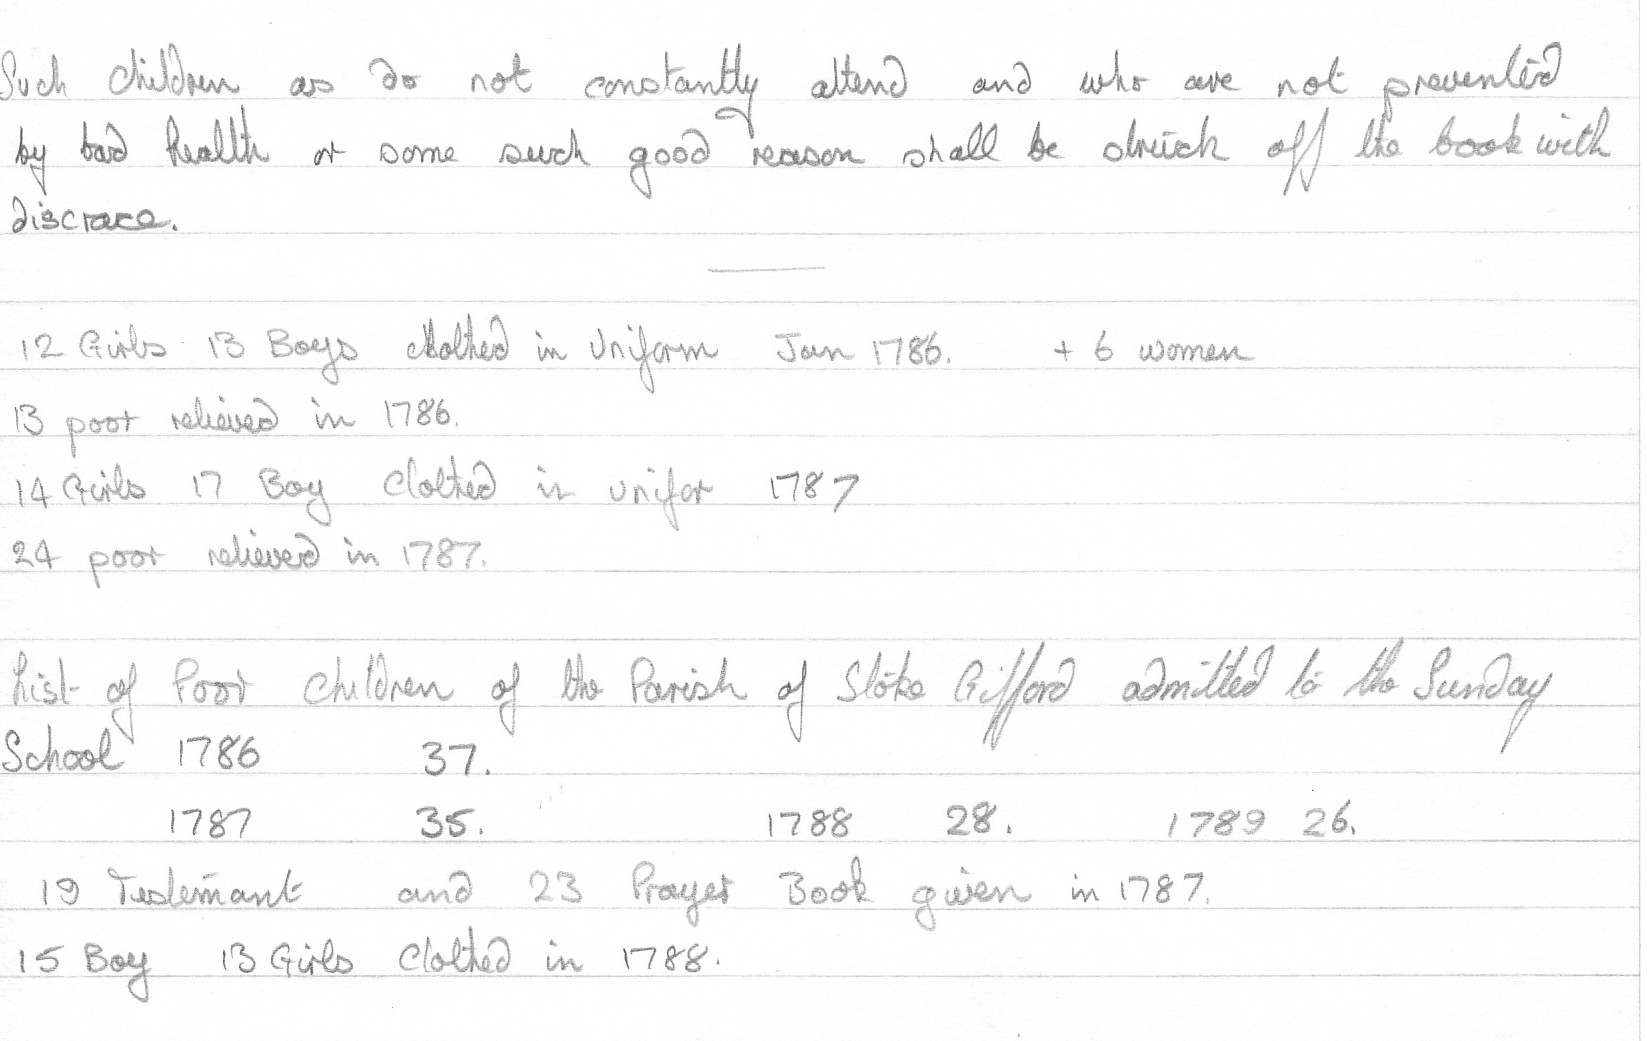 Such children as do not constantly attend and who are not prevented
by bad health or some such good reason shall be struck off the book with
discrace.
12 Girls 13 Boys clothed in Uniform Jan 1786. + 6 women
13 poor relieved in 1786.
14 Girls 17 Boy Clothed in unifor 1787
24 poor relieved in 1787.
List of Poor Children of the Parish of Stoke Gifford admitted to the Sunday
School 1786 37.
1787 35. 1788 28. 1789 26.
19 Testemant and 23 Prayer Book given in 1787.
15 Boy 13 Girls Clothed in 1788.